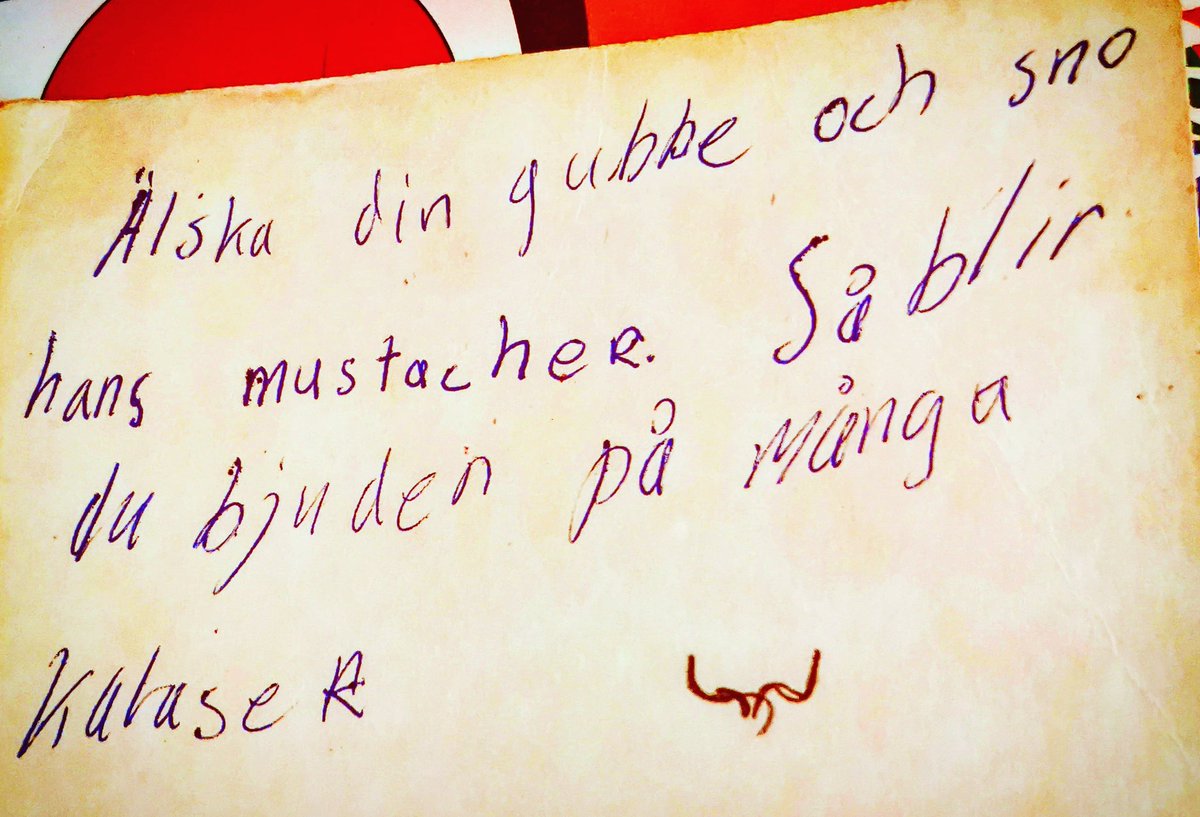 Älska din gubbe och sno
hans mustacher. Så blir
du bjuden på många
Kalaser